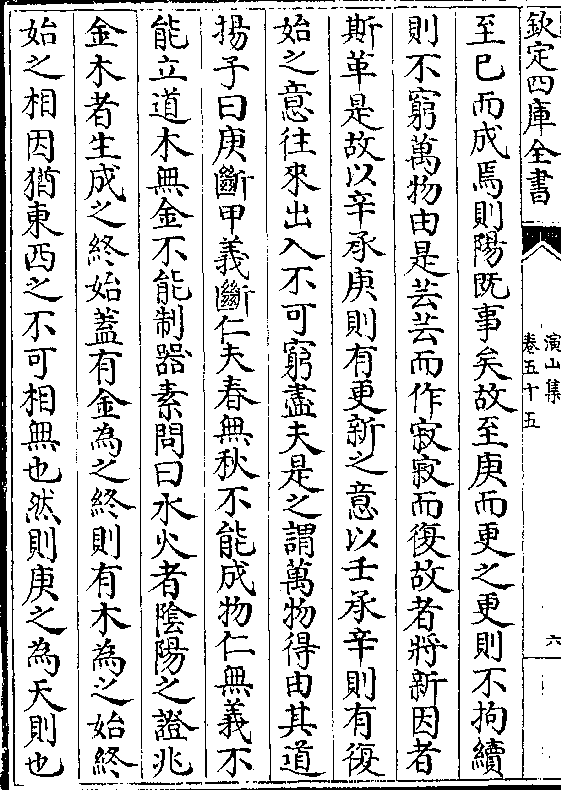 欽定四庫全書
演山集
卷五十五
六
至已而成焉則陽既事矣故至庚而更之更則不拘續
則不窮萬物由是芸芸而作寂寂而復故者將新因者
斯革是故以辛承庚則有更新之意以壬承辛則有復
始之意往來出入不可窮盡夫是之謂萬物得由其道
揚子曰庚斷甲義斷仁夫春無秋不能成物仁無義不
能立道木無金不能制器素問曰水火者陰陽之證兆
金木者生成之終始葢有金為之終則有木為之始終
始之相因猶東西之不可相無也然則庚之為天則也